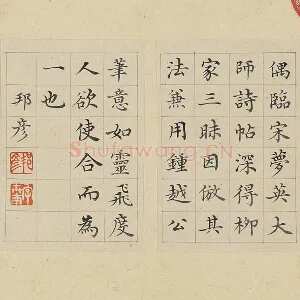 偶臨宋夢英大
師詩帖深得柳
家三昧因倣其
法兼用鍾越公
筆意如靈飛度
人欲使合而為
一也
邦彦
Shufawang.CN